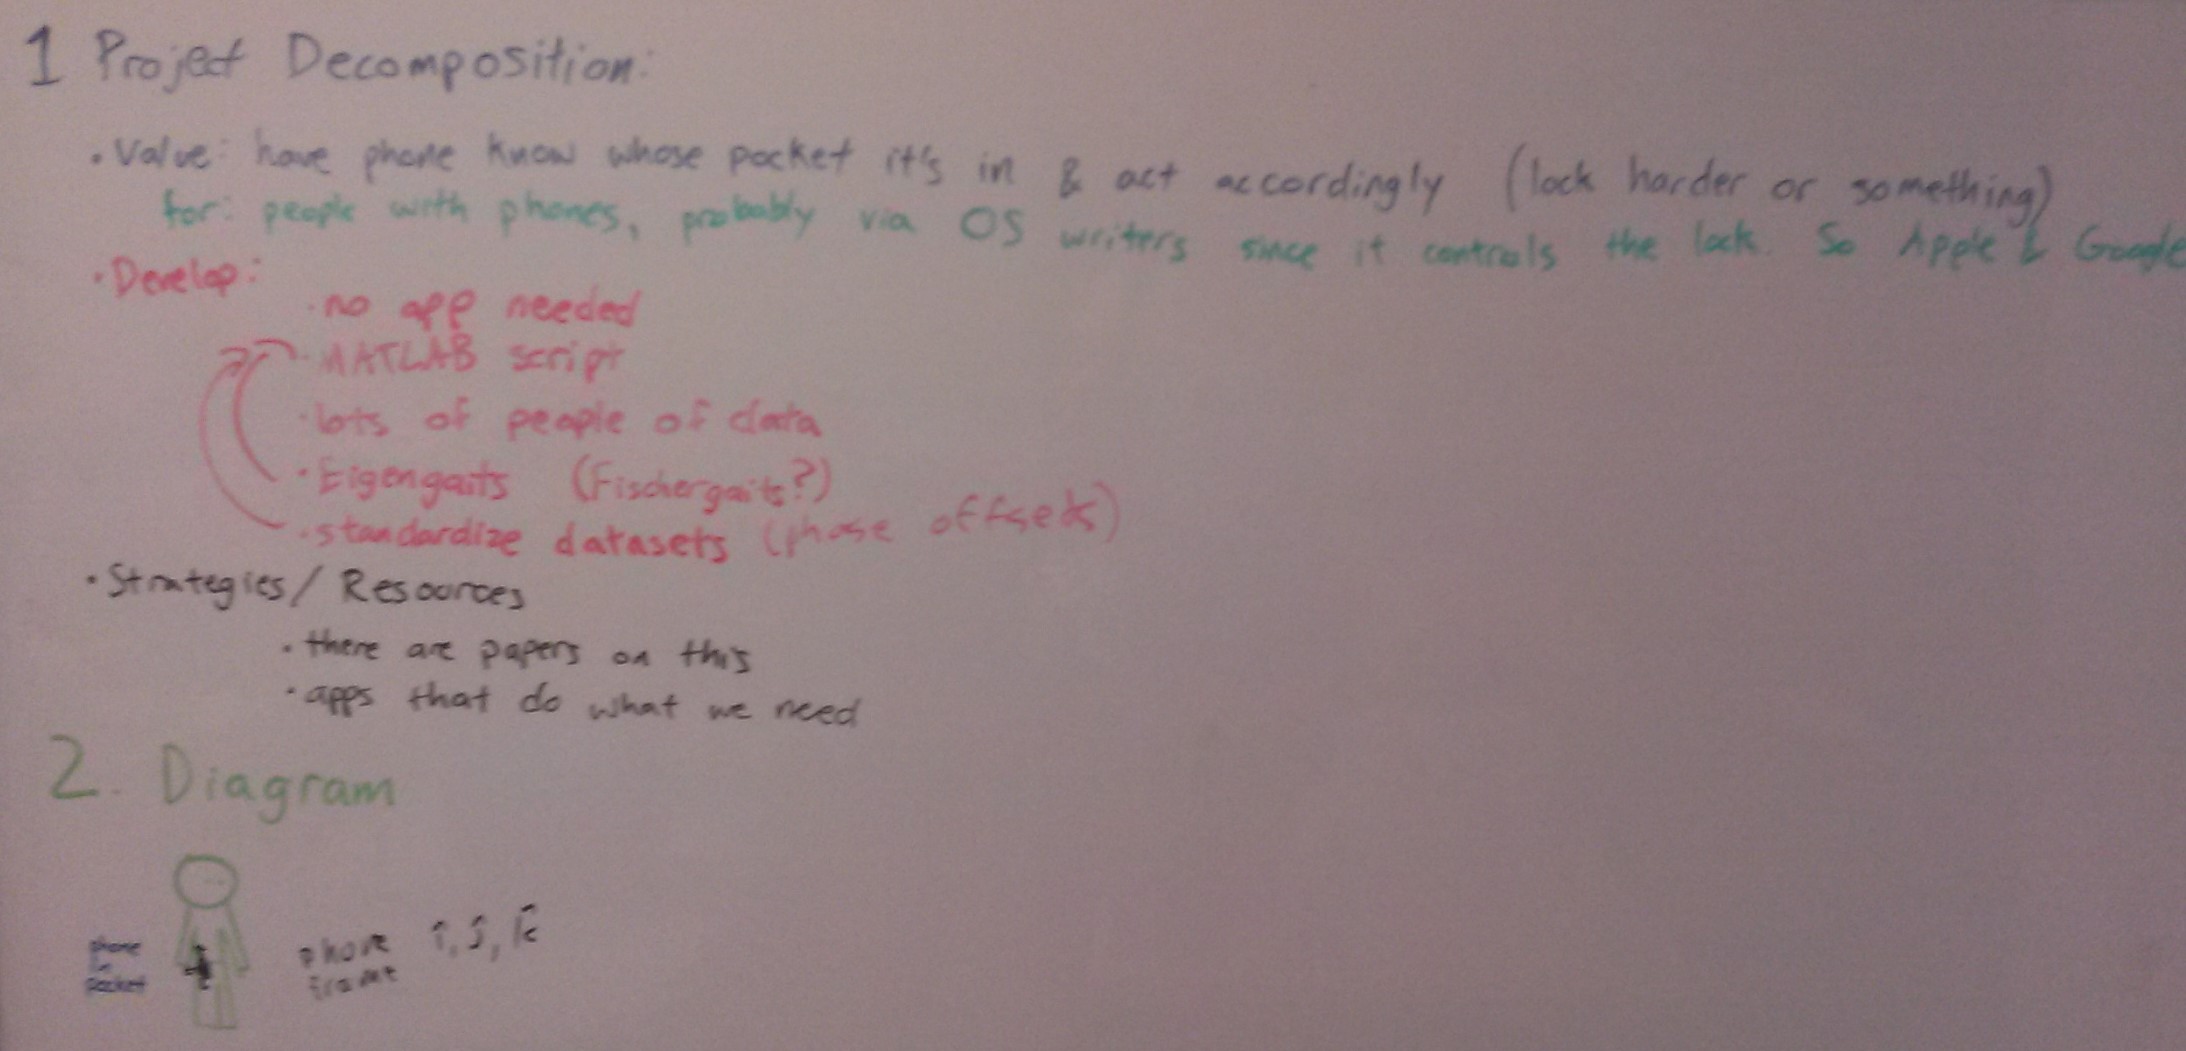 1 Project Decomposition:
• Value: have phone know whose pocket it's in & act accordingly (lock harder or something)
for: people with phones, probably via OS writers since it controls the lock. So Apple & Google
• Develop:
• no app needed
• MATLAB script
• lots of people of data
• Eigengaits (Fischergaits?)
• standardize datasets (phase offsets)
• Strategies/Resources
• there are papers on this
• apps that do what we need
2. Diagram
phone
in
pocket
phone î, ĵ, k̂